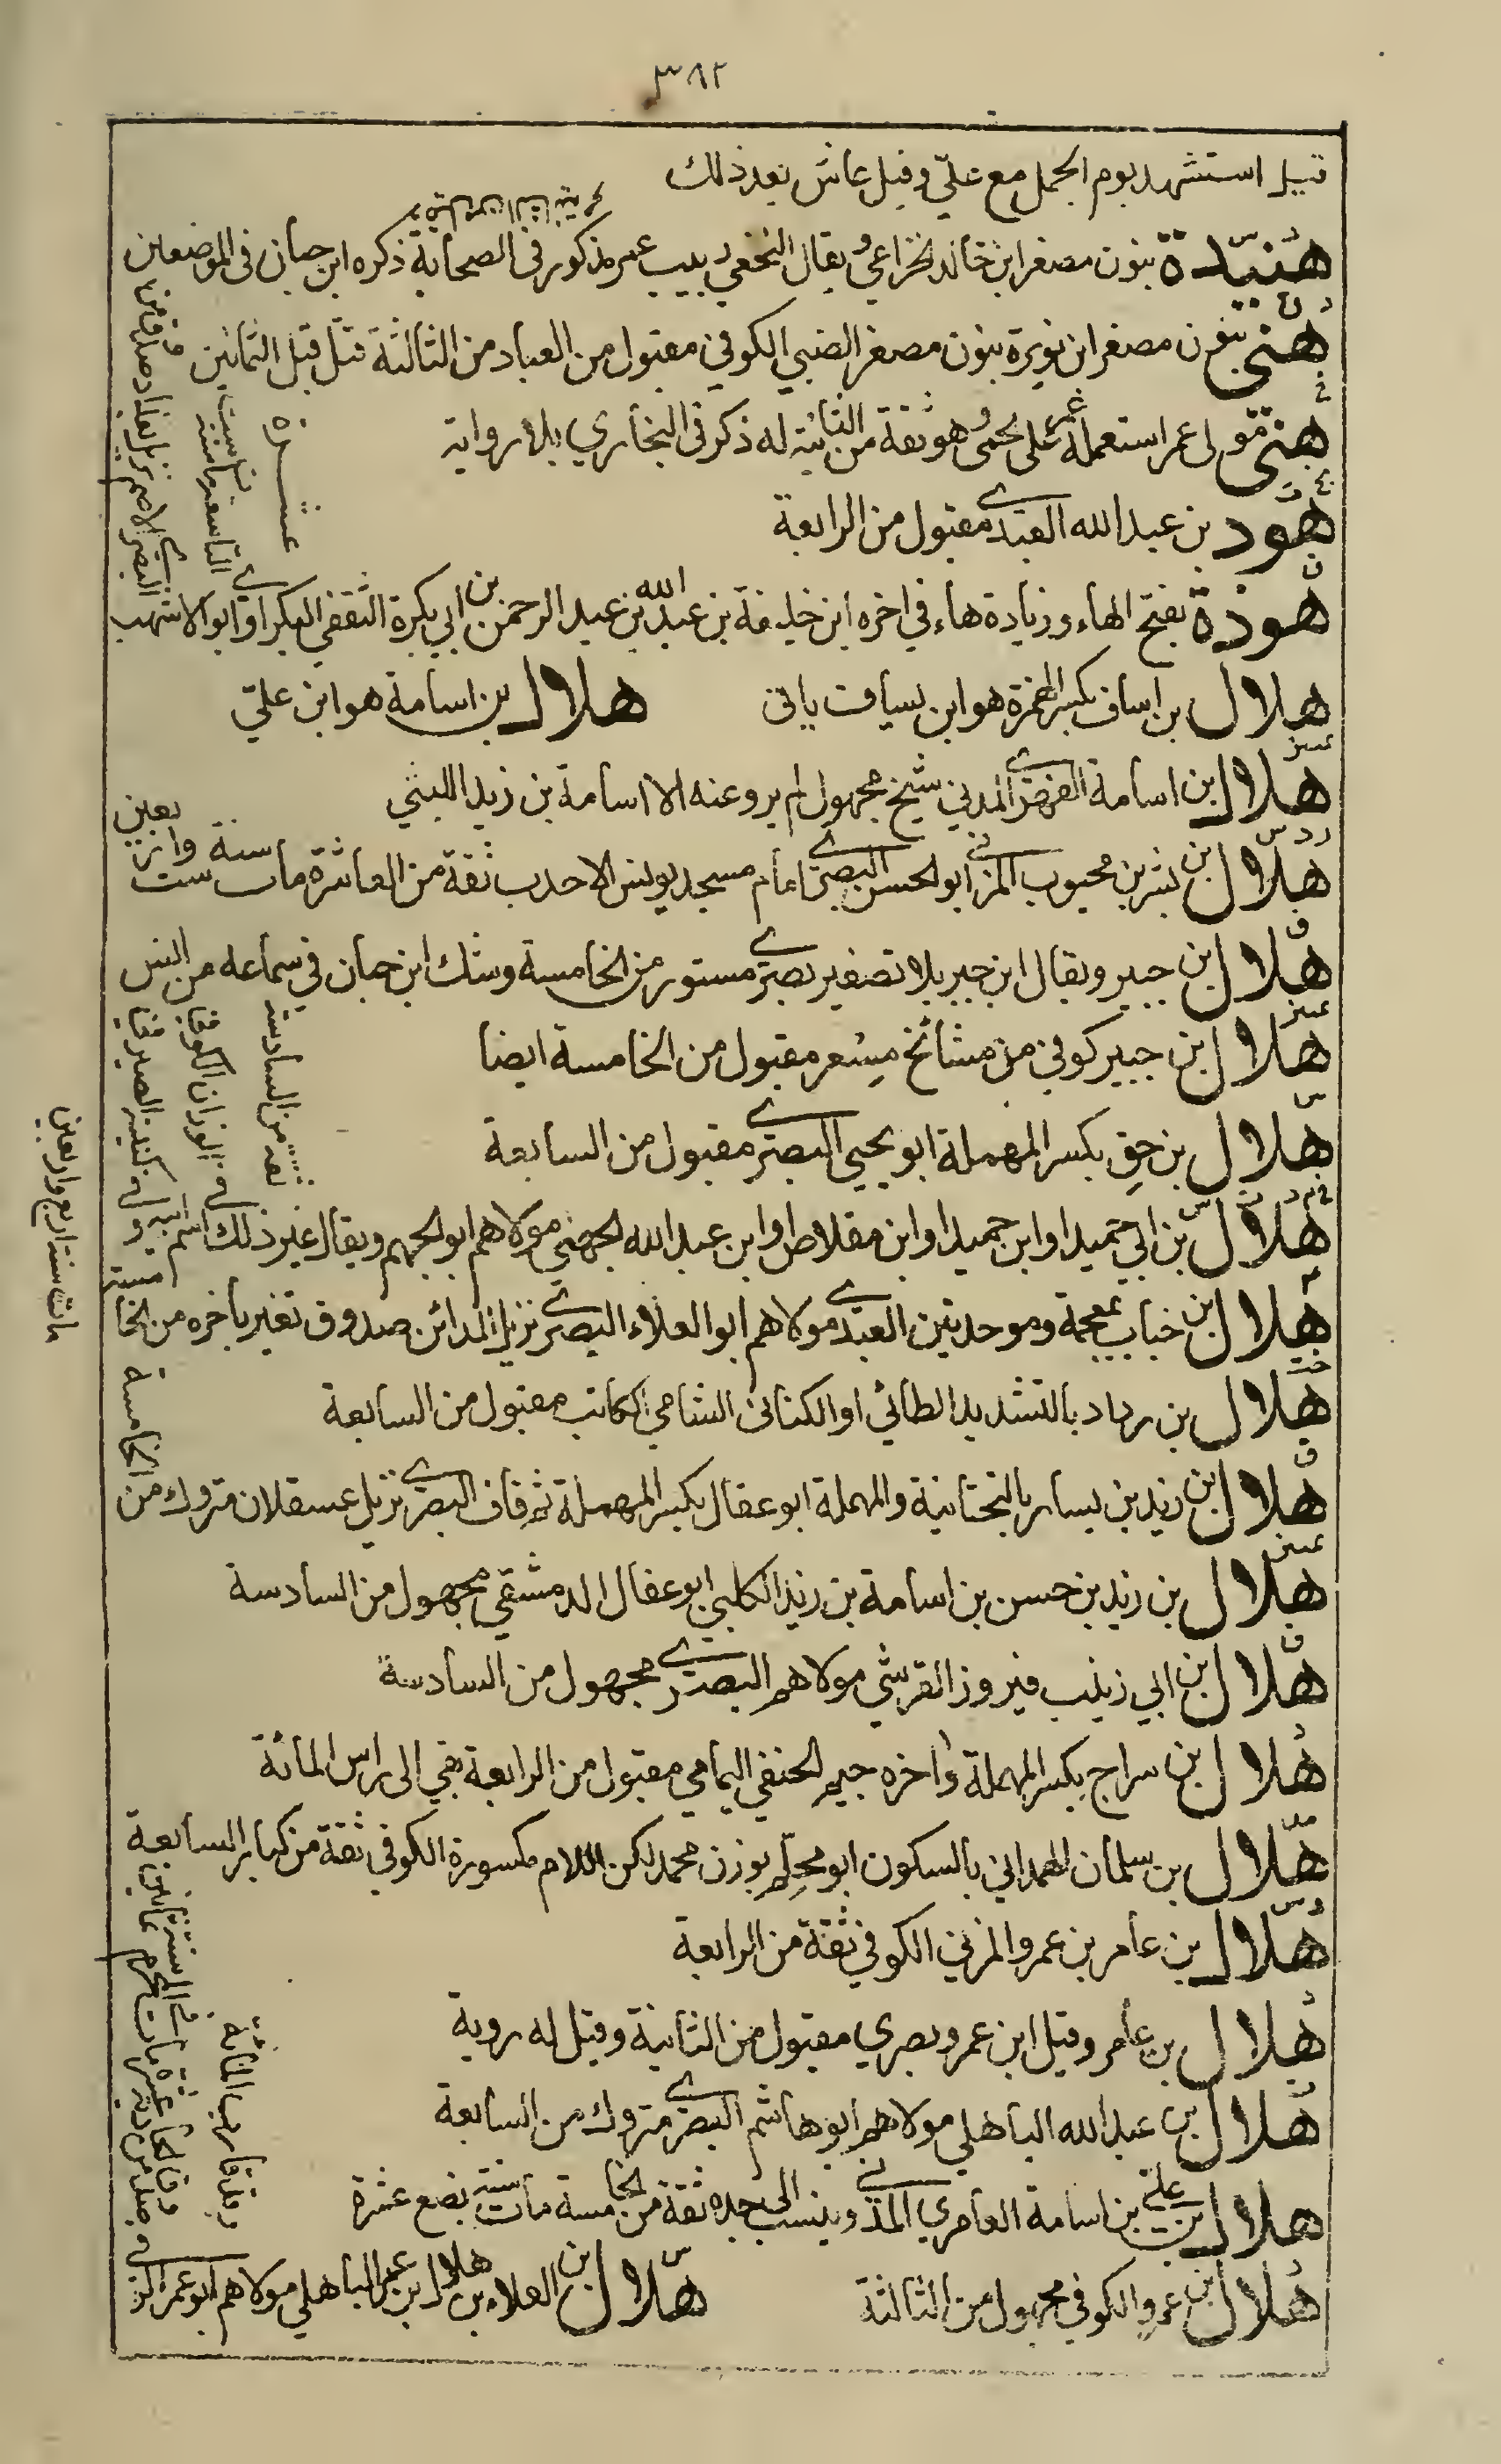 ٣٨٢
قتيل استشهد يوم الجمل مع علي وقيل عاش بعد ذلك
هنيدة بنون مصغر ابن خالد الخزاعي ويقال النخعي ربيب عمر مذكور في الصحابة ذكره ابن حبان في الموضعين
هني بنون مصغر ابن نويرة بنون مصغر الضبي الكوفي مقبول من العباد من الثالثة قتل قبل الثمانين
هني مولى عمر استعمله عمر على الحمى وهو ثقة من الثانية له ذكر في البخاري بلا رواية
هود بن عبد الله العبدي مقبول من الرابعة
هوذة بفتح الهاء وزيادة هاء في اخره ابن خليفة بن عبد الله بن عبد الرحمن بن ابي بكرة الثقفي البكراوي ابو الاشهب
البصري الاصم نزيل بغداد صدوق من
التاسعة مات سنة ست
عشرة
هلال بن اساف بكسر الهمزة هو ابن يساف ياتي
هلال بن اسامة هو ابن علي
هلال ابن اسامة الفهري المدني شيخ مجهول لم يرو عنه الا اسامة بن زيد الليثي
هلال ابن بشر بن محبوب المزني ابو الحسن البصري امام مسجد يونس الاحدب ثقة من العاشرة مات سنة ست واربعين
هلال ابن جبير ويقال ابن جبر بلا تصغير بصري مستور من الخامسة وشك ابن حبان في سماعه من انس
هلال ابن جبير كوفي من مشائخ مسعر مقبول من الخامسة ايضا
هلال بن حق بكسر المهملة ابو يحيى البصري مقبول من السابعة
هلال بن ابي حميد او ابن حميد او ابن مقلاص او ابن عبد الله الجهني مولاهم ابو الجهم ويقال غير ذلك اسم ابيه و
في كنيته الصيرفي
في الوزان الكوفي
ثقة من السادسة
هلال ابن خباب بمعجمة وموحدتين العبدي مولاهم ابو العلاء البصري نزيل المدائن صدوق تغير باخره من الخامسة
مات سنة اربع واربعين
هلال بن رداد بالتشديد الطائي او الكناني الشامي الكاتب مقبول من السابعة
هلال ابن زيد بن يسار بالتحتانية والمهملة ابو عقال بكسر المهملة ثم قاف البصري نزيل عسقلان متروك من
الخامسة
هلال بن زيد بن حسن بن اسامة بن زيد الكلبي ابو عقال الدمشقي مجهول من السادسة
هلال ابن ابي زينب فيروز القرشي مولاهم البصري مجهول من السادسة
هلال ابن سراج بكسر المهملة واخره جيم الحنفي اليمامي مقبول من الرابعة بقي الى راس المائة
هلال بن سلمان الهمداني بالسكون ابو محلم بوزن محمد لكن اللام مكسورة الكوفي ثقة من كبار السابعة
هلال بن عامر بن عمرو المزني الكوفي ثقة من الرابعة
هلال بن عامر وقيل ابن عمرو بصري مقبول من الثانية وقيل له روية
هلال بن عبد الله الباهلي مولاهم ابو هاشم البصري متروك من السابعة
هلال بن علي بن اسامة العامري المدني وينسب الى جده ثقة من الخامسة مات سنة بضع عشرة
هلال ابن عمرو الكوفي مجهول من الثالثة
هلال ابن العلاء بن هلال ابن عمر الباهلي مولاهم ابو عمر الرقي
صدوق من
وقد قارب المائة